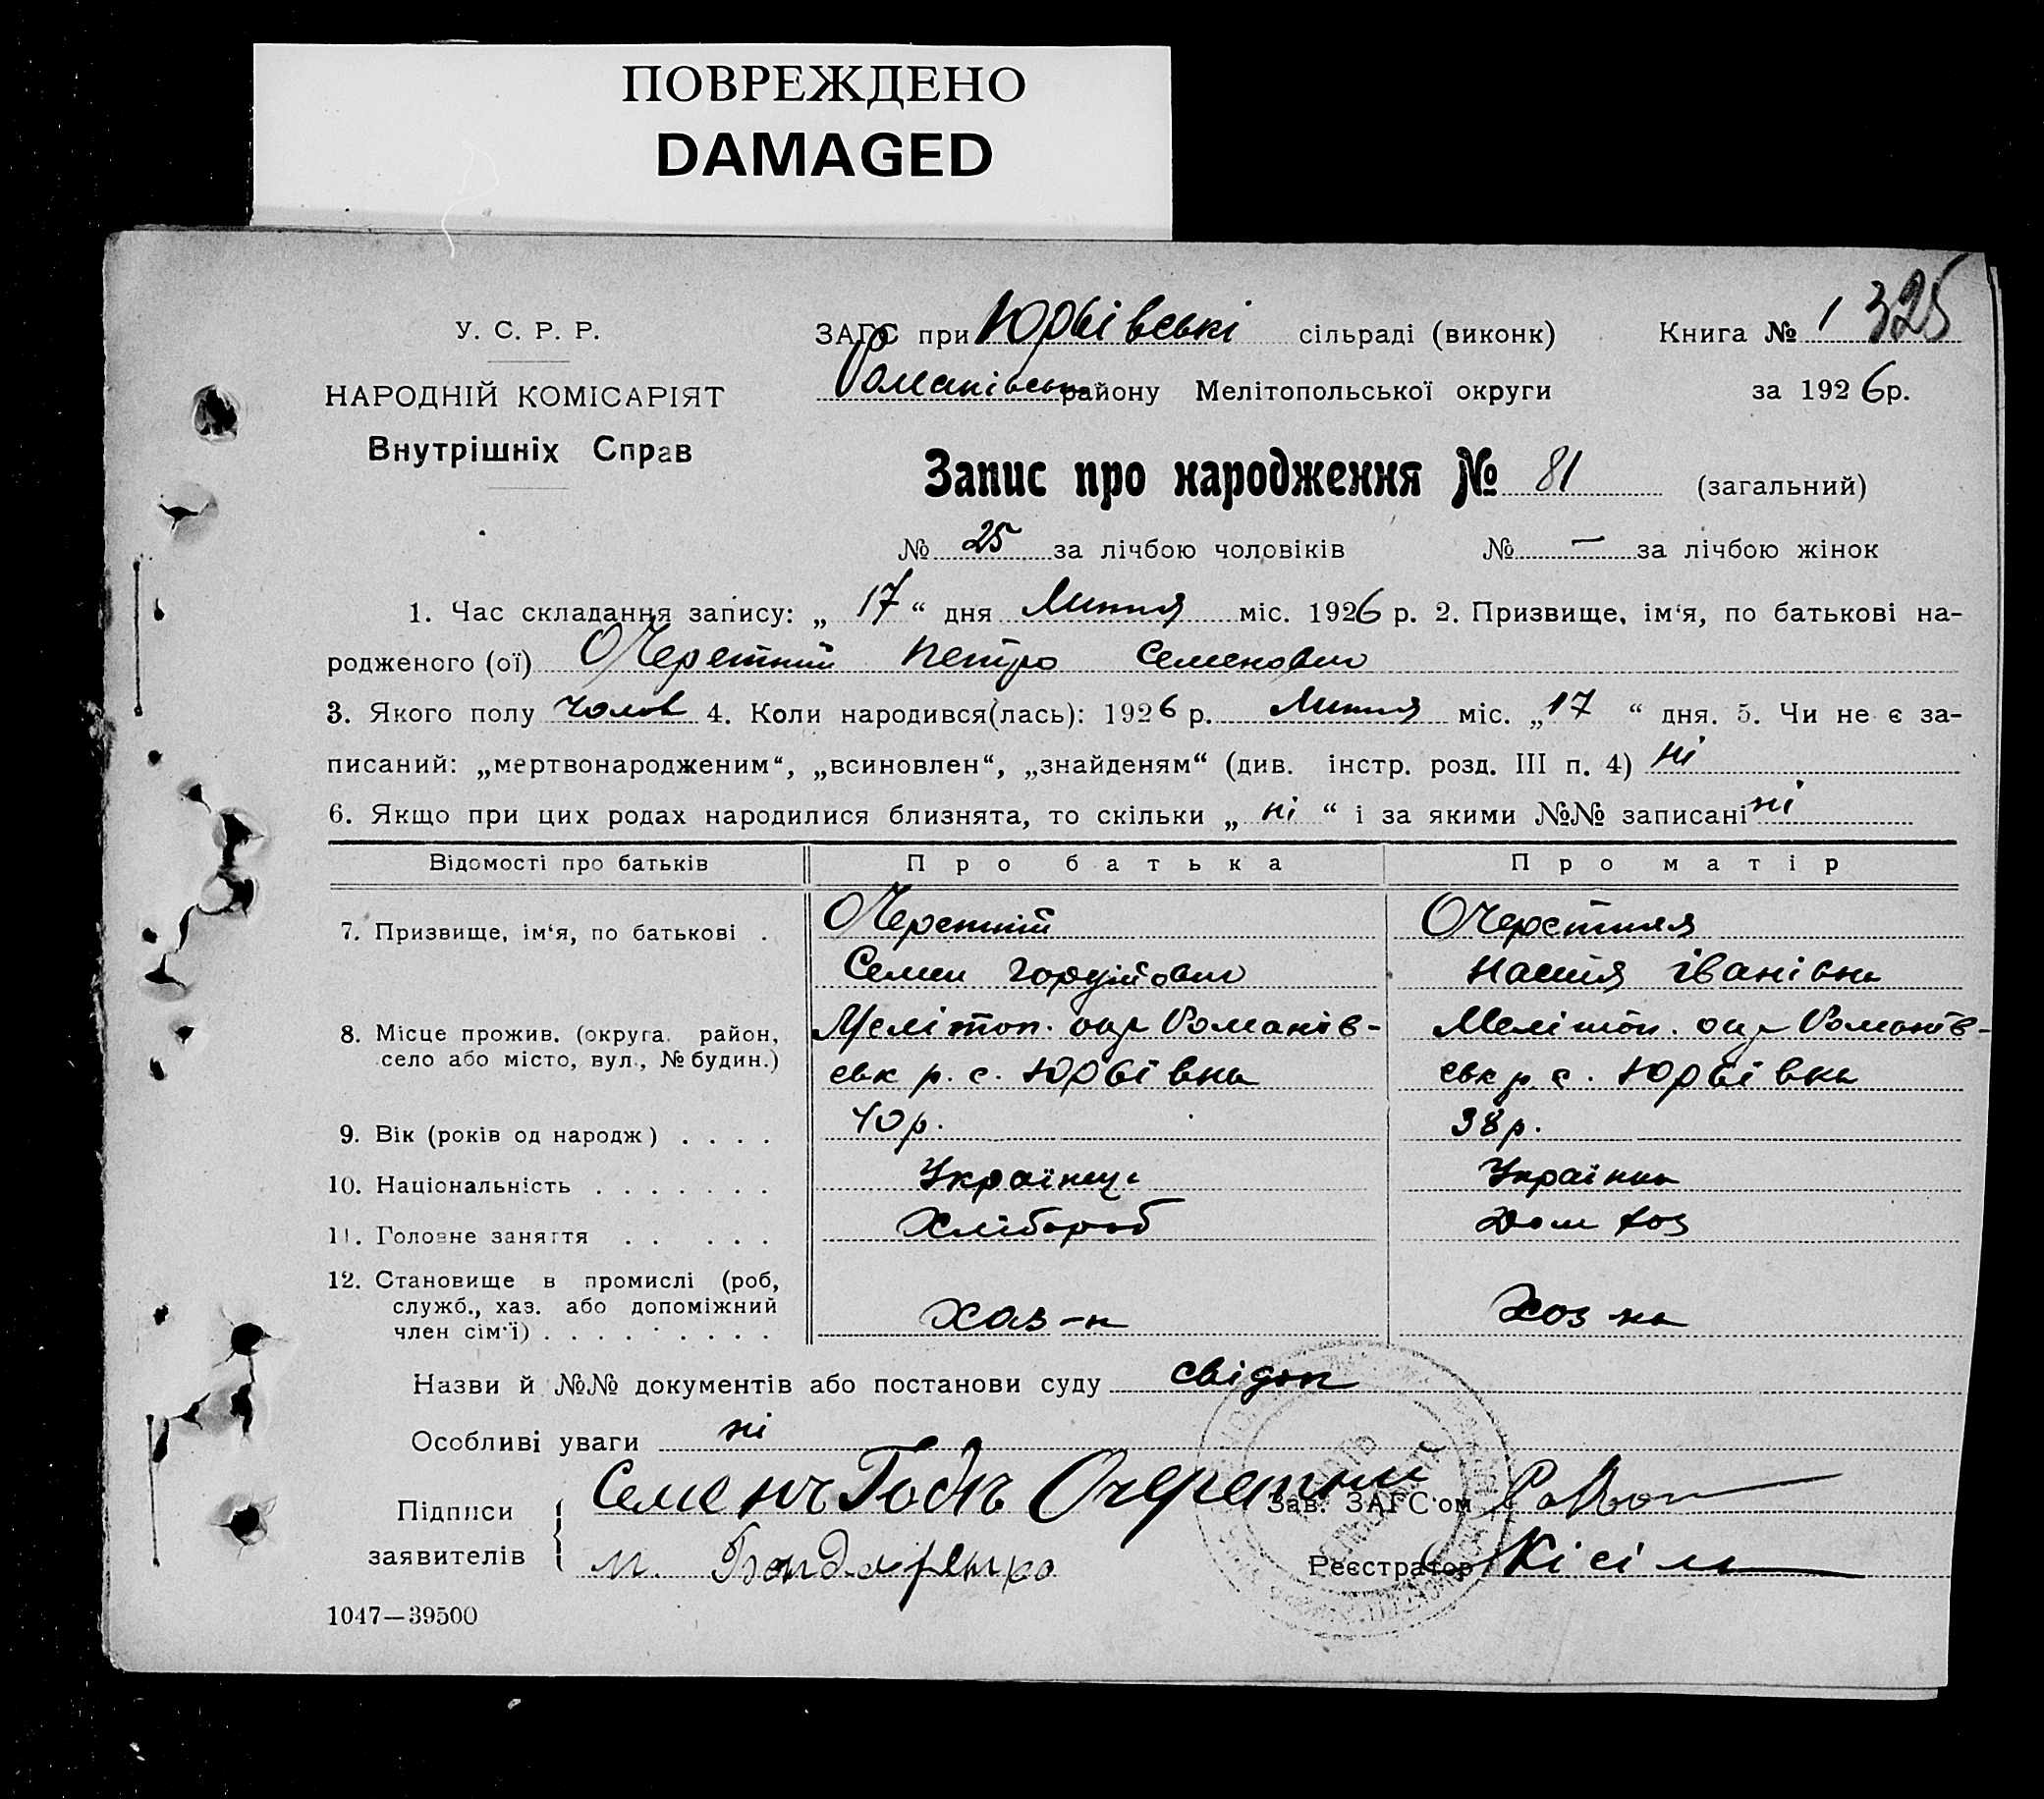 ПОВРЕЖДЕНО
DAMAGED
325
У. С. Р. Р.
НАРОДНІЙ КОМІСАРІЯТ
Внутрішніх Справ
ЗАГС при Юрʼївські сільраді (виконк) Книга № 1
Романівськ району Мелітопольської округи за 1926р.
Запис про народження № 81 (загальний)
№ 25 за лічбою чоловіків № — за лічбою жінок
1. Час складання запису: „ 17 “ дня Липня міс. 1926 р. 2. Призвище, ім‘я, по батькові на-
родженого (ої) Очеретний Петро Семенович
3. Якого полу Чолов 4. Коли народився(лась): 1926 р. Липня міс. „ 17 “ дня. 5. Чи не є за-
писаний: „мертвонародженим“, „всиновлен“, „знайденям“ (див. інстр. розд. III п. 4) ні
6. Якщо при цих родах народилися близнята, то скільки „ ні “ і за якими №№ записані ні
Відомості про батьків Про батька Про матір
7. Призвище, ім‘я, по батькові . Очеретний Очеретняя
Семен Гордійович Настя Іванівна
8. Місце прожив. (округа, район, Меліт оп. окр Романів- Мелітоп. окр Романів-
село або місто, вул., № будин.) ськ р. с. Юрʼївка ськ р с. Юрʼївка
9. Вік (років од народж) . . . . 40 р. 38 р.
10. Національність . . . . . . . Українець Українка
11. Головне заняття . . . . . Хлібороб Дом хоз
12. Становище в промислі (роб,
служб., хаз. або допоміжний Хаз-н Хоз ка
член сім‘ї) . . . . . . . . .
Назви й №№ документів або постанови суду свідок
Особливі уваги ні
Підписи Семенъ Очеретний Зав. ЗАГС‘ом
заявителів М. Бондаренко Реєстратор Кісіль
1047—39500